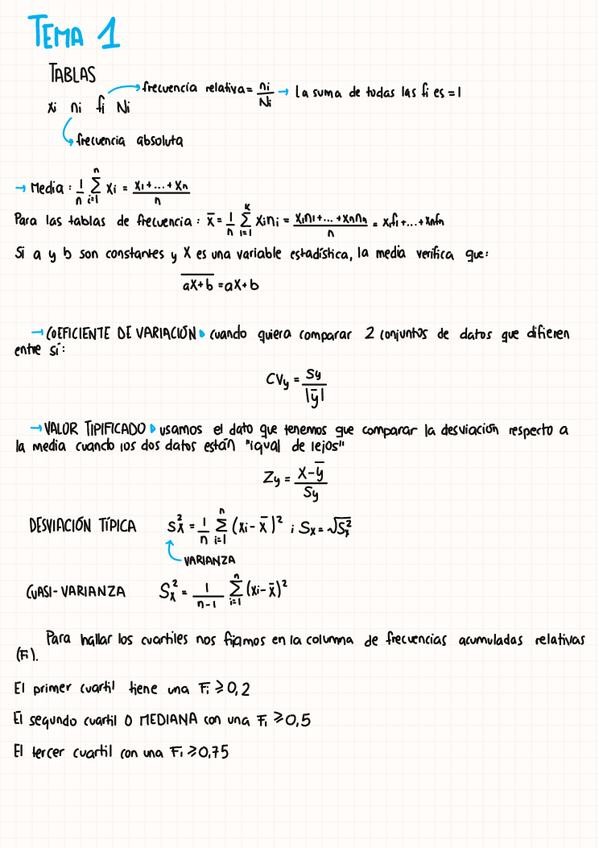 TEMA 1
TABLAS
frecuencia relativa = ni/Ni → La suma de todas las fi es = 1
xi ni fi Ni
frecuencia absoluta
→ Media: 1/n ∑_{i=1}^{n} xi = (x1 + ... + xn)/n
Para las tablas de frecuencia: x̄ = 1/n ∑_{i=1}^{k} xini = (x1n1 + ... + xnnn)/n = x1f1 + ... + xnfn
Si a y b son constantes y X es una variable estadística, la media verifica que:
\overline{aX+b} = aX+b
→ COEFICIENTE DE VARIACIÓN cuando quiera comparar 2 conjuntos de datos que difieren
entre sí:
CVy = Sy/|ȳ|
→ VALOR TIPIFICADO usamos el dato que tenemos que comparar la desviación respecto a
la media cuando los dos datos están "igual de lejos"
Zy = (X-ȳ)/Sy
DESVIACIÓN TÍPICA Sx² = 1/n ∑_{i=1}^{n} (xi - x̄)² ; Sx = √Sx²
VARIANZA
CUASI-VARIANZA Sx² = 1/(n-1) ∑_{i=1}^{n} (xi - x̄)²
Para hallar los cuartiles nos fijamos en la columna de frecuencias acumuladas relativas
(Fi).
El primer cuartil tiene una Fi ≥ 0,2
El segundo cuartil O MEDIANA con una Fi ≥ 0,5
El tercer cuartil con una Fi ≥ 0,75